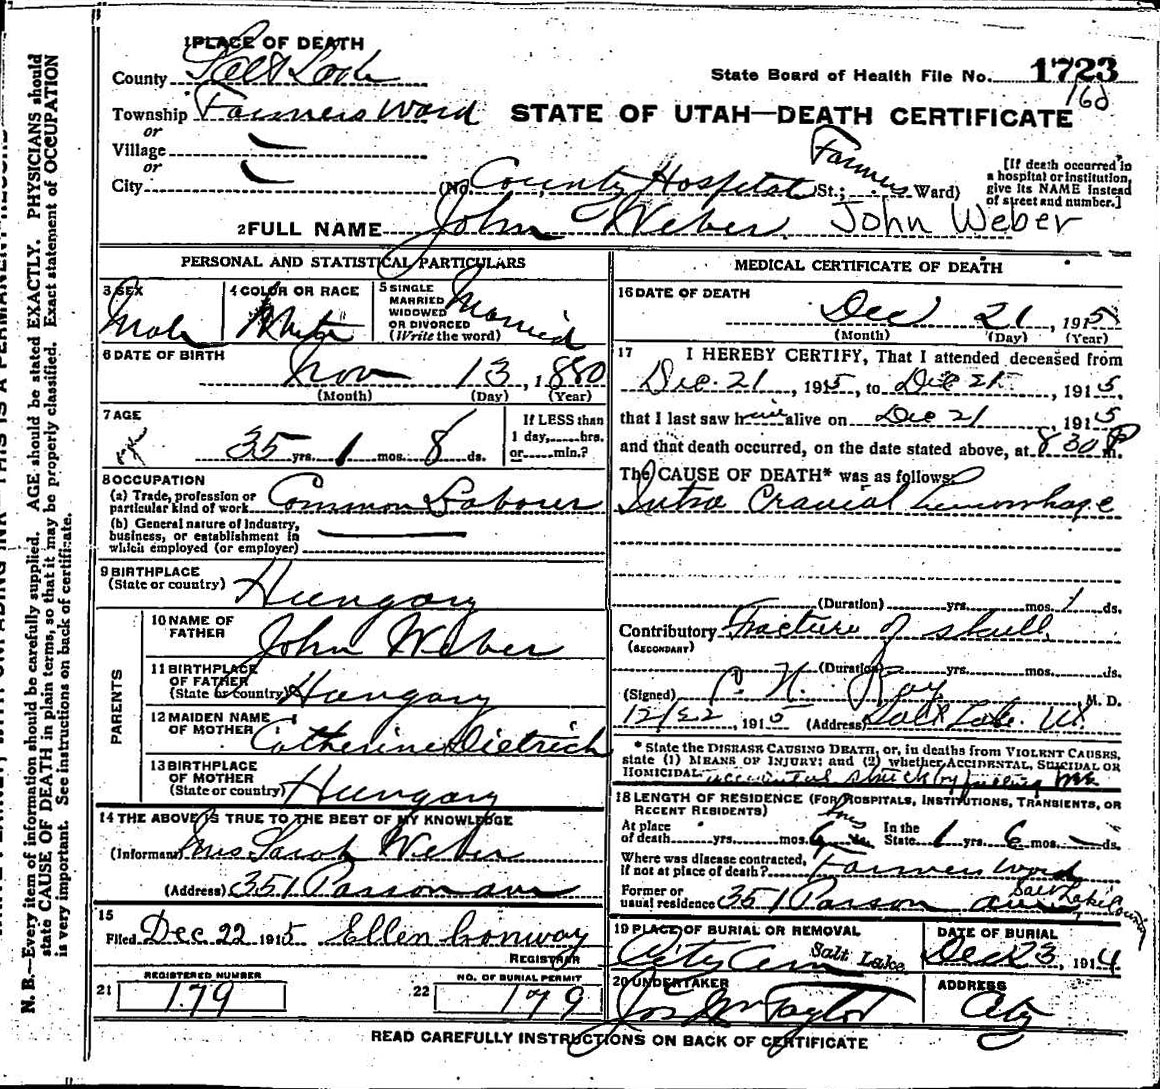 1 PLACE OF DEATH
County Salt Lake
State Board of Health File No. 1723
160
Township Farmers Ward
STATE OF UTAH—DEATH CERTIFICATE
or
Village
or
City
(No. County Hospital St.; Farmers Ward)
[If death occurred in a hospital or institution, give its NAME instead of street and number.]
2 FULL NAME John Weber John Weber
PERSONAL AND STATISTICAL PARTICULARS
3 SEX
Male
4 COLOR OR RACE
White
5 SINGLE MARRIED WIDOWED OR DIVORCED (Write the word)
Married
6 DATE OF BIRTH
Nov 13, 1880
(Month) (Day) (Year)
7 AGE
35 yrs. 1 mos. 8 ds.
If LESS than 1 day,......hrs. or......min.?
8 OCCUPATION
(a) Trade, profession or particular kind of work Common Laborer
(b) General nature of Industry, business, or establishment in which employed (or employer)
9 BIRTHPLACE
(State or country) Hungary
PARENTS
10 NAME OF FATHER John Weber
11 BIRTHPLACE OF FATHER (State or country) Hungary
12 MAIDEN NAME OF MOTHER Catherine Dietrich
13 BIRTHPLACE OF MOTHER (State or country) Hungary
14 THE ABOVE IS TRUE TO THE BEST OF MY KNOWLEDGE
(Informant) Mrs Sarah Weber
(Address) 351 Parson ave
15
Filed Dec 22 1915 Ellen Conway
REGISTRAR
REGISTERED NUMBER
21 179
NO. OF BURIAL PERMIT
22 179
MEDICAL CERTIFICATE OF DEATH
16 DATE OF DEATH
Dec 21, 1915
(Month) (Day) (Year)
17 I HEREBY CERTIFY, That I attended deceased from
Dec. 21, 1915, to Dec 21, 1915,
that I last saw him alive on Dec 21 1915
and that death occurred, on the date stated above, at 8 30 P m.
The CAUSE OF DEATH* was as follows:
Intra Cranial hemorrhage
(Duration) yrs. mos. 1 ds.
Contributory Fracture of skull
(SECONDARY)
(Duration) yrs. mos. ds.
(Signed) Ray M. D.
12/22, 1915 (Address) Salt Lake. Ut
* State the DISEASE CAUSING DEATH, or, in deaths from VIOLENT CAUSES,
state (1) MEANS OF INJURY; and (2) whether ACCIDENTAL, SUICIDAL OR
HOMICIDAL. accidental struck by falling
18 LENGTH OF RESIDENCE (FOR HOSPITALS, INSTITUTIONS, TRANSIENTS, OR RECENT RESIDENTS)
At place of death yrs. mos. 6 ds. In the State 1 yrs 6 mos. ds.
Where was disease contracted, If not at place of death? Farmers Ward
Former or usual residence 351 Parson ave Salt Lake County
19 PLACE OF BURIAL OR REMOVAL
City Cem Salt Lake
DATE OF BURIAL
Dec 23, 1914
20 UNDERTAKER
Jos Wm Taylor
ADDRESS
City
READ CAREFULLY INSTRUCTIONS ON BACK OF CERTIFICATE
N. B.—Every item of information should be carefully supplied. AGE should be stated EXACTLY. PHYSICIANS should
state CAUSE OF DEATH in plain terms, so that it may be properly classified. Exact statement of OCCUPATION
is very important. See instructions on back of certificate.